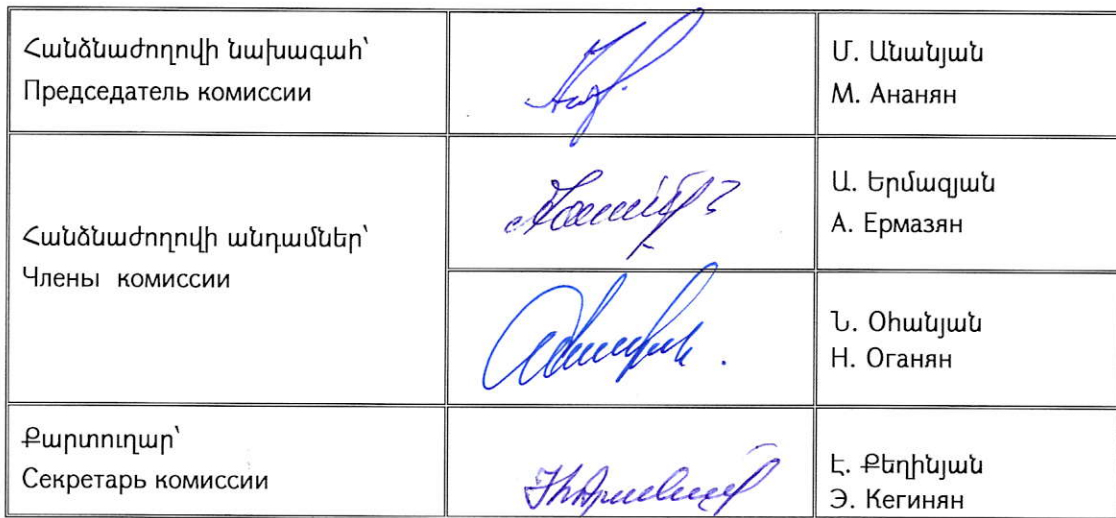 Հանձնաժողովի նախագահ՝
Председатель комиссии
Մ. Անանյան
М. Ананян
Հանձնաժողովի անդամներ՝
Члены комиссии
Ա. Երմազյան
А. Ермазян
Ն. Օհանյան
Н. Оганян
Քարտուղար՝
Секретарь комиссии
Է. Քեղինյան
Э. Кегинян